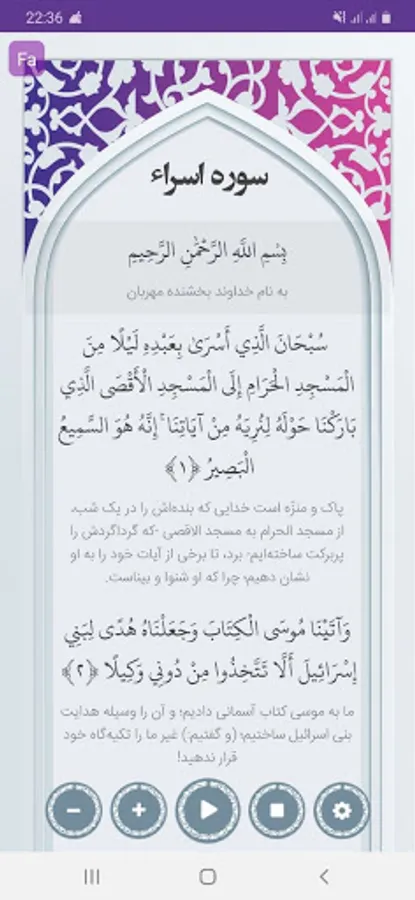 22:36
Fa
سوره اسراء
بِسْمِ اللَّهِ الرَّحْمَٰنِ الرَّحِيمِ
به نام خداوند بخشنده مهربان
سُبْحَانَ الَّذِي أَسْرَىٰ بِعَبْدِهِ لَيْلًا مِنَ
الْمَسْجِدِ الْحَرَامِ إِلَى الْمَسْجِدِ الْأَقْصَى الَّذِي
بَارَكْنَا حَوْلَهُ لِنُرِيَهُ مِنْ آيَاتِنَا ۚ إِنَّهُ هُوَ السَّمِيعُ
الْبَصِيرُ ﴿١﴾
پاک و منزّه است خدایی که بنده‌اش را در یک شب،
از مسجد الحرام به مسجد الاقصی -که گرداگردش را
پربرکت ساخته‌ایم- برد، تا برخی از آیات خود را به او
نشان دهیم؛ چرا که او شنوا و بیناست.
وَآتَيْنَا مُوسَى الْكِتَابَ وَجَعَلْنَاهُ هُدًى لِبَنِي
إِسْرَائِيلَ أَلَّا تَتَّخِذُوا مِنْ دُونِي وَكِيلًا ﴿٢﴾
ما به موسی کتاب آسمانی دادیم؛ و آن را وسیله هدایت
بنی اسرائیل ساختیم؛ (و گفتیم:) غیر ما را تکیه‌گاه خود
قرار ندهید!